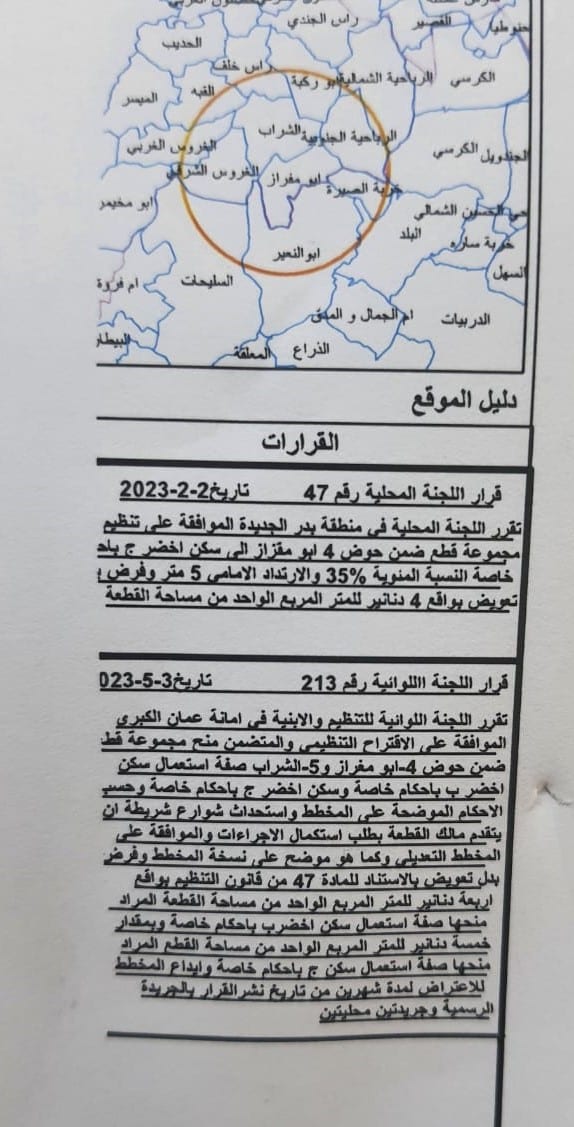 حنوطيا
القصير
راس الجندي
الحديب
راس خلف
الكرسي
الرباحية الشمالية
ابو ركبة
القبه
الميسر
الشراب
الرباحية الجنوبية
الغروس الغربي
الكرسي
الجندويل
الغروس الشرقي
ابو مغراز
خربة الصيرة
ابو مخيمر
حي الحسين الشمالي
البلد
خربة ساره
ابو النعير
السهل
السليحات
ام فروة
ام الجمال و المدق
الدربيات
البيطار
المعلقة
الذراع
دليل الموقع
القرارات
قرار اللجنة المحلية رقم 47 تاريخ2-2-2023
تقرر اللجنة المحلية في منطقة بدر الجديدة الموافقة على تنظيم
مجموعة قطع ضمن حوض 4 ابو مغزاز الى سكن اخضر ج باحـ
خاصة النسبة المئوية 35% والارتداد الامامي 5 متر وفرض
تعويض بواقع 4 دنانير للمتر المربع الواحد من مساحة القطعة
قرار اللجنة االلوائية رقم 213 تاريخ3-5-023
تقرر اللجنة اللوائية للتنظيم والابنية في امانة عمان الكبرى
الموافقة على الاقتراح التنظيمي والمتضمن منح مجموعة قطـ
ضمن حوض 4-ابو مغراز و5-الشراب صفة استعمال سكن
اخضر ب باحكام خاصة وسكن اخضر ج باحكام خاصة وحسب
الاحكام الموضحة على المخطط واستحداث شوارع شريطة ان
يتقدم مالك القطعة بطلب استكمال الاجراءات والموافقة على
المخطط التعديلي وكما هو موضح على نسخة المخطط وفرض
بدل تعويض بالاستناد للمادة 47 من قانون التنظيم بواقع
اربعة دنانير للمتر المربع الواحد من مساحة القطعة المراد
منحها صفة استعمال سكن اخضرب باحكام خاصة وبمقدار
خمسة دنانير للمتر المربع الواحد من مساحة القطع المراد
منحها صفة استعمال سكن ج باحكام خاصة وايداع المخطط
للاعتراض لمدة شهرين من تاريخ نشرالقرار بالجريدة
الرسمية وجريدتين محليتين